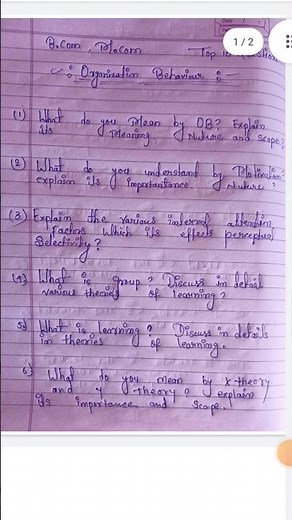 B.Com, M.Com Top 10
1 / 2
Organisation Behaviour :-
(1) What do you Mean by OB? Explain
its Meaning Nature and Scope?
(2) What do you understand by Motivation?
explain its importantance. Nature?
(3) Explain the various internal attention
Factors which its effects perceptual
Selectivity?
(4) What is group? Discuss in detail
various theories of learning?
5) What is learning? Discuss in details
in theories of learning.
6) What do you mean by x theory
and y theory? explain
its importance and Scope.